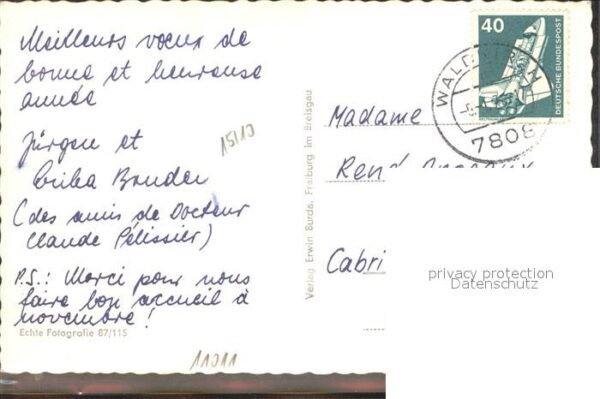 Meilleurs voeux de
bonne et heureuse
année
Jürgen et
Erika Bander
(des amis de Docteur
Claude Pélissier)
P.S.: Merci pour nous
faire bon accueil à
novembre!
Echte Fotografie 87/115
15110
11911
Verlag Erwin Burda, Freiburg im Breisgau
40
DEUTSCHE BUNDESPOST
7808
Madame
René
Cabri
privacy protection
Datenschutz